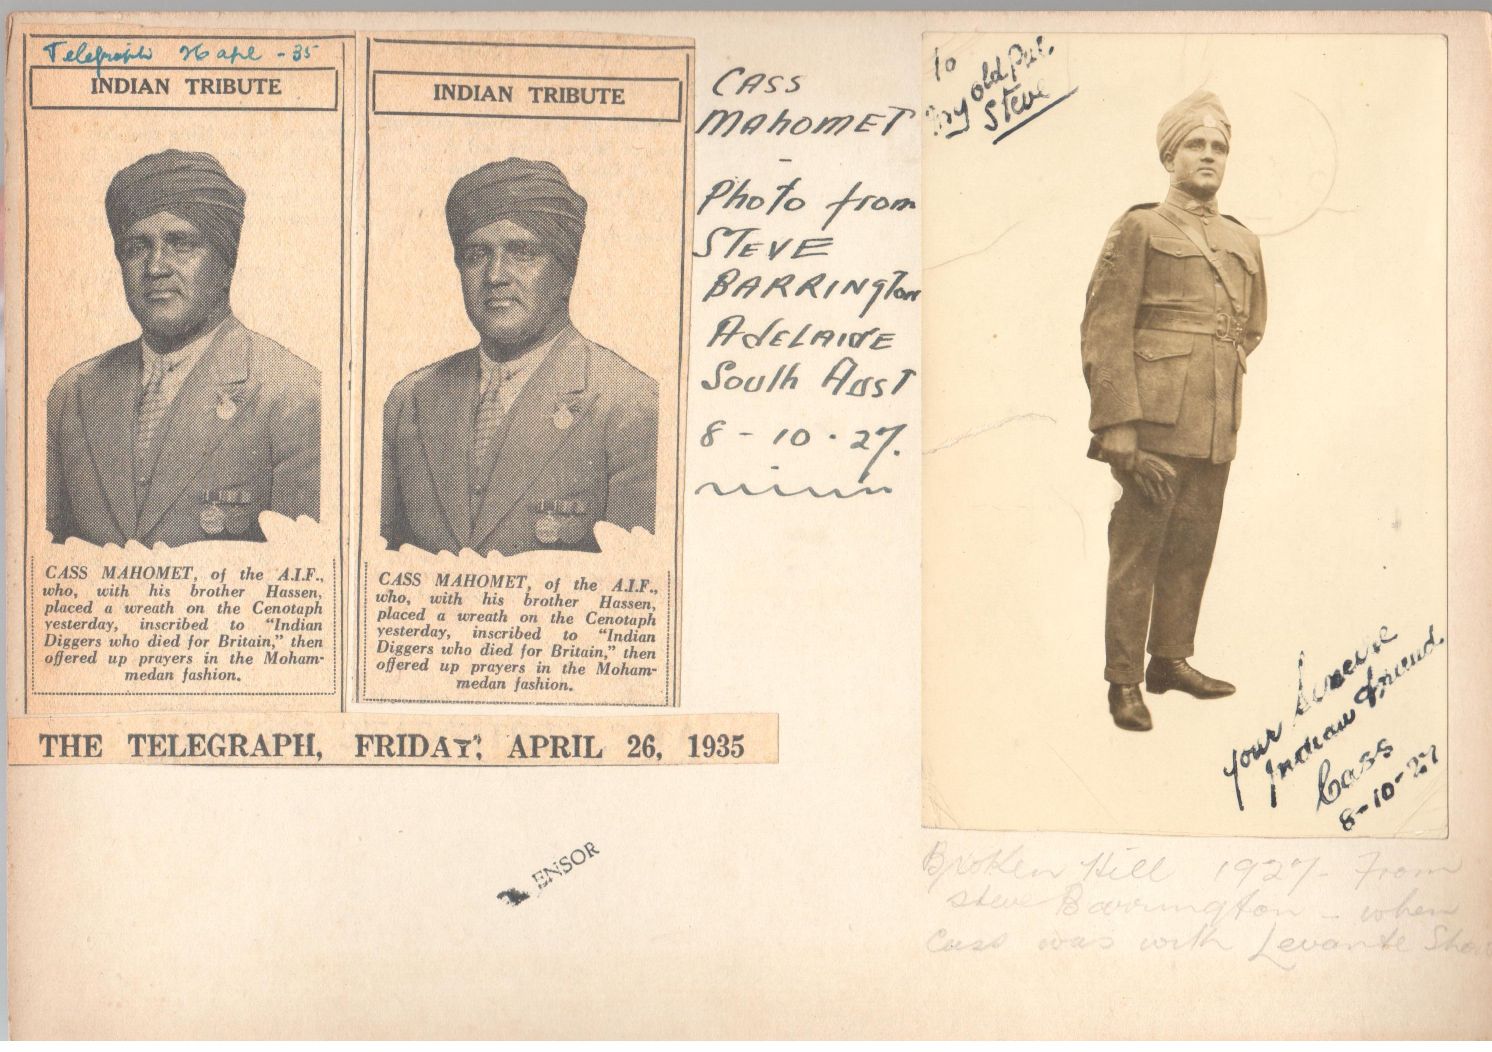 Telegraph 26 apl - 35
INDIAN TRIBUTE
CASS MAHOMET, of the A.I.F.,
who, with his brother Hassen,
placed a wreath on the Cenotaph
yesterday, inscribed to "Indian
Diggers who died for Britain," then
offered up prayers in the Moham-
medan fashion.
INDIAN TRIBUTE
CASS MAHOMET, of the A.I.F.,
who, with his brother Hassen,
placed a wreath on the Cenotaph
yesterday, inscribed to "Indian
Diggers who died for Britain," then
offered up prayers in the Moham-
medan fashion.
THE TELEGRAPH, FRIDAY, APRIL 26, 1935
CASS
MAHOMET
-
Photo from
STEVE
BARRINgTon
AdELAIDE
South AusT
8-10.27.
To
My old
Steve
your Sincere
Indian Friend
Cass
8-10-27
Broken Hill 1927 - From
Steve Barrington - when
Cass was with Levante Show
ENSOR